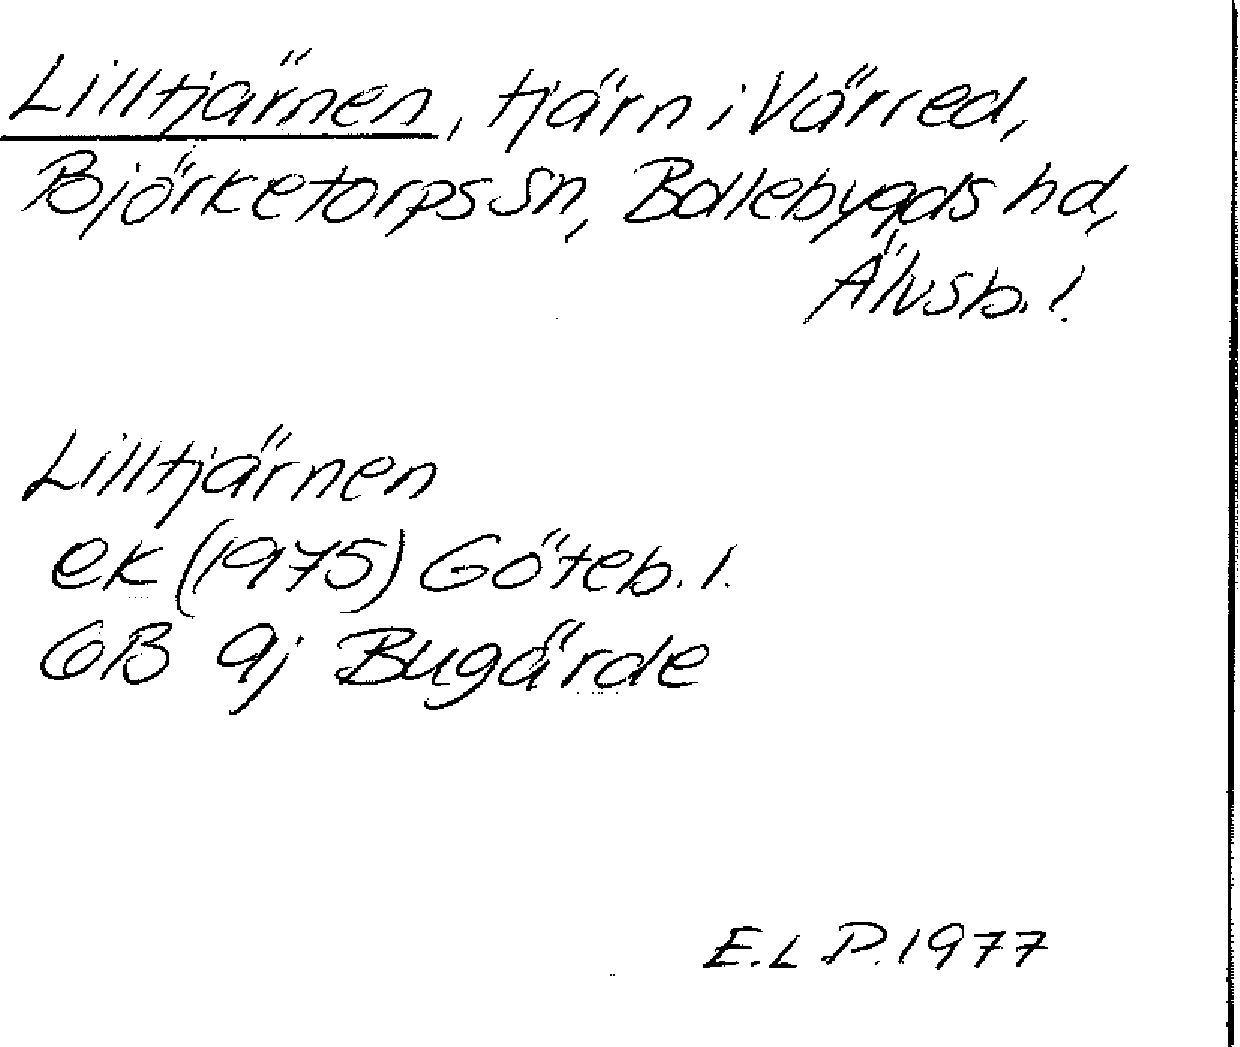 Lilltjärnen, tjärn i Värred,
Björketorps sn, Bollebygds hd,
Älvsb. l.
Lilltjärnen
ek (1975) Göteb. l.
GB 9j Bugärde
E.L P. 1977